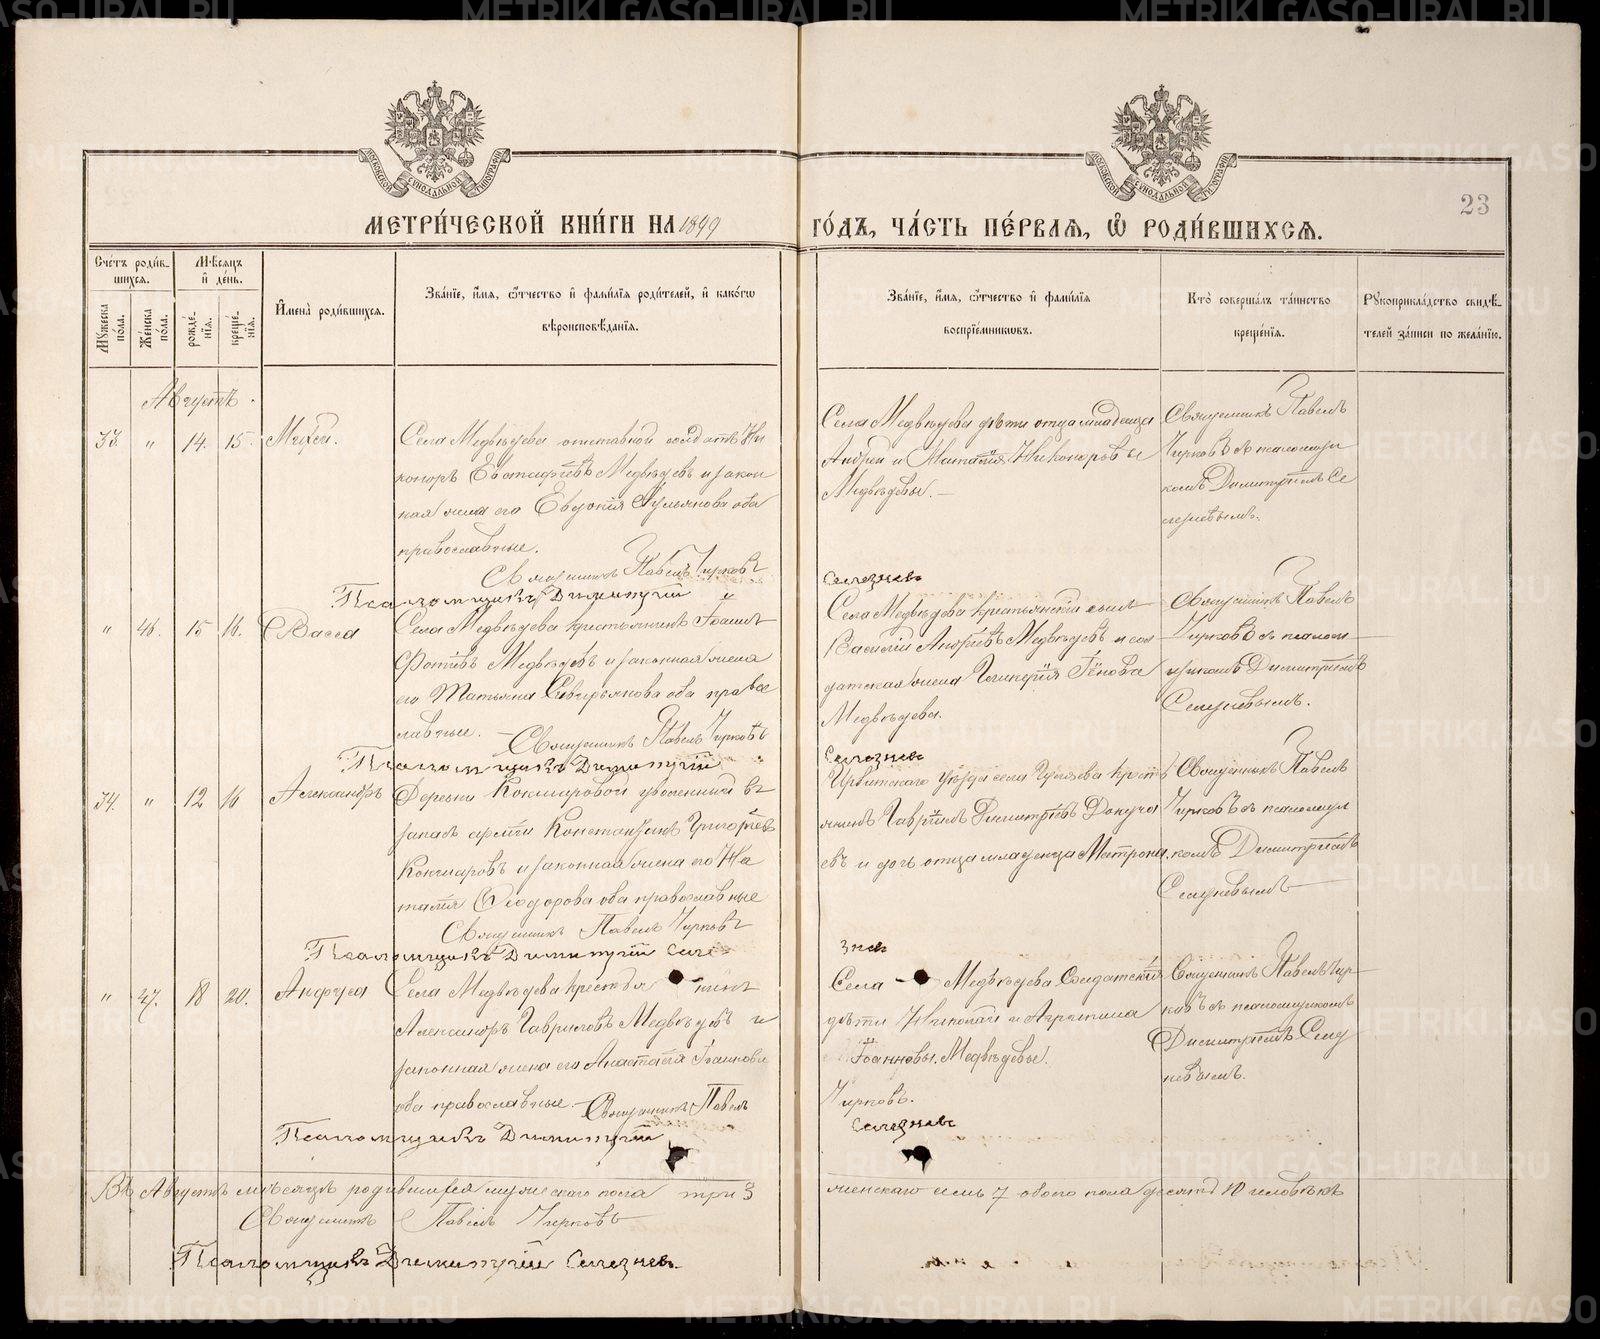 МЕТРИ́ЧЕСКОЙ КНИ́ГИ НА 1899 ГО́ДЪ, ЧА́СТЬ ПЕ́РВАЯ, Ѽ РОДИ́ВШИХСЯ.
23
Сче́тъ роди́вшихся.
Мꙋ́жеска пола.
Же́нска пола.
Мѣ́сяцъ и де́нь.
рожде́нїя.
креще́нїя.
И҆мена̀ роди́вшихся.
Зва́нїе, и҆́мя, ѻ҆́тчество и҆ фами́лїя роди́телей, и҆ како́гѡ
вѣроисповѣ́данїя.
Зва́нїе, и҆́мя, ѻ҆́тчество и҆ фами́лїя
воспрїе́мниковъ.
Кто̀ соверша́лъ та́инство
креще́нїя.
Рꙋкоприкла́дство свидѣ́-
телей за́писи по жела́нїю.
Августъ.
33. " 14. 15.
Села Медвѣдева отставной солдатъ Ни
коноръ Евстафіевъ Медвѣдевъ и закон
ная жена его Евдокія Лукьянова оба
православные.
Священникъ Павелъ Чирковъ
Псаломщикъ Димитрій
Села Медвѣдева дѣти отца младенца
Андрей и Наталія Никоноровы
Медвѣдевы.
Селезневъ
Священникъ Павелъ
Чирковъ съ псаломщи
комъ Димитріемъ Се
лезневымъ.
" 46. 15 16. Васса
Села Медвѣдева крестьянинъ Іоаннъ
Фотіевъ Медвѣдевъ и законная жена
его Татьяна Севирьянова оба право
славные.
Священникъ Павелъ Чирковъ
Псаломщикъ Димитрій
Села Медвѣдева крестьянскій сынъ
Василій Андреевъ Медвѣдевъ и сол
датская жена Гликерія
Медвѣдева.
Селезневъ
Священникъ Павелъ
Чирковъ съ псалом
щикомъ Димитріемъ
Селезневымъ.
34. " 12 16 Александръ
Деревни Кокшаровой уволенный въ
запасъ арміи Константинъ Григорьевъ
Кокшаровъ и законная жена его На
талія Ѳеодорова оба православные
Священникъ Павелъ Чирковъ
Псаломщикъ Димитрій Селе
Ирбитскаго уѣзда села кресть
янинъ Гавріилъ Димитріевъ
и дочь отца младенца Матрона.
зневъ
Священникъ Павелъ
Чирковъ съ псаломщи
комъ Димитріемъ
Селезневымъ
" 47. 18 20. Анфуса
Села Медвѣдева крестья нинъ
Александръ Гавриловъ Медвѣдевъ и
законная жена его Анастасія Іоаннова
оба православные.
Священникъ Павелъ
Псаломщикъ Димитрій
Села Медвѣдева Солдатскія
дѣти Николай и Агрипина
Іоанновы Медвѣдевы.
Чирковъ.
Селезневъ
Священникъ Павелъ Чир
ковъ съ псаломщикомъ
Димитріемъ Селез
невымъ.
Въ Августѣ мѣсяцѣ родившихся мужескаго пола три 3 женскаго семь 7 обоего пола десять 10 человѣкъ
Священникъ Павелъ Чирковъ
Псаломщикъ Димитрій Селезневъ.
METRIKI.GASO-URAL.RU